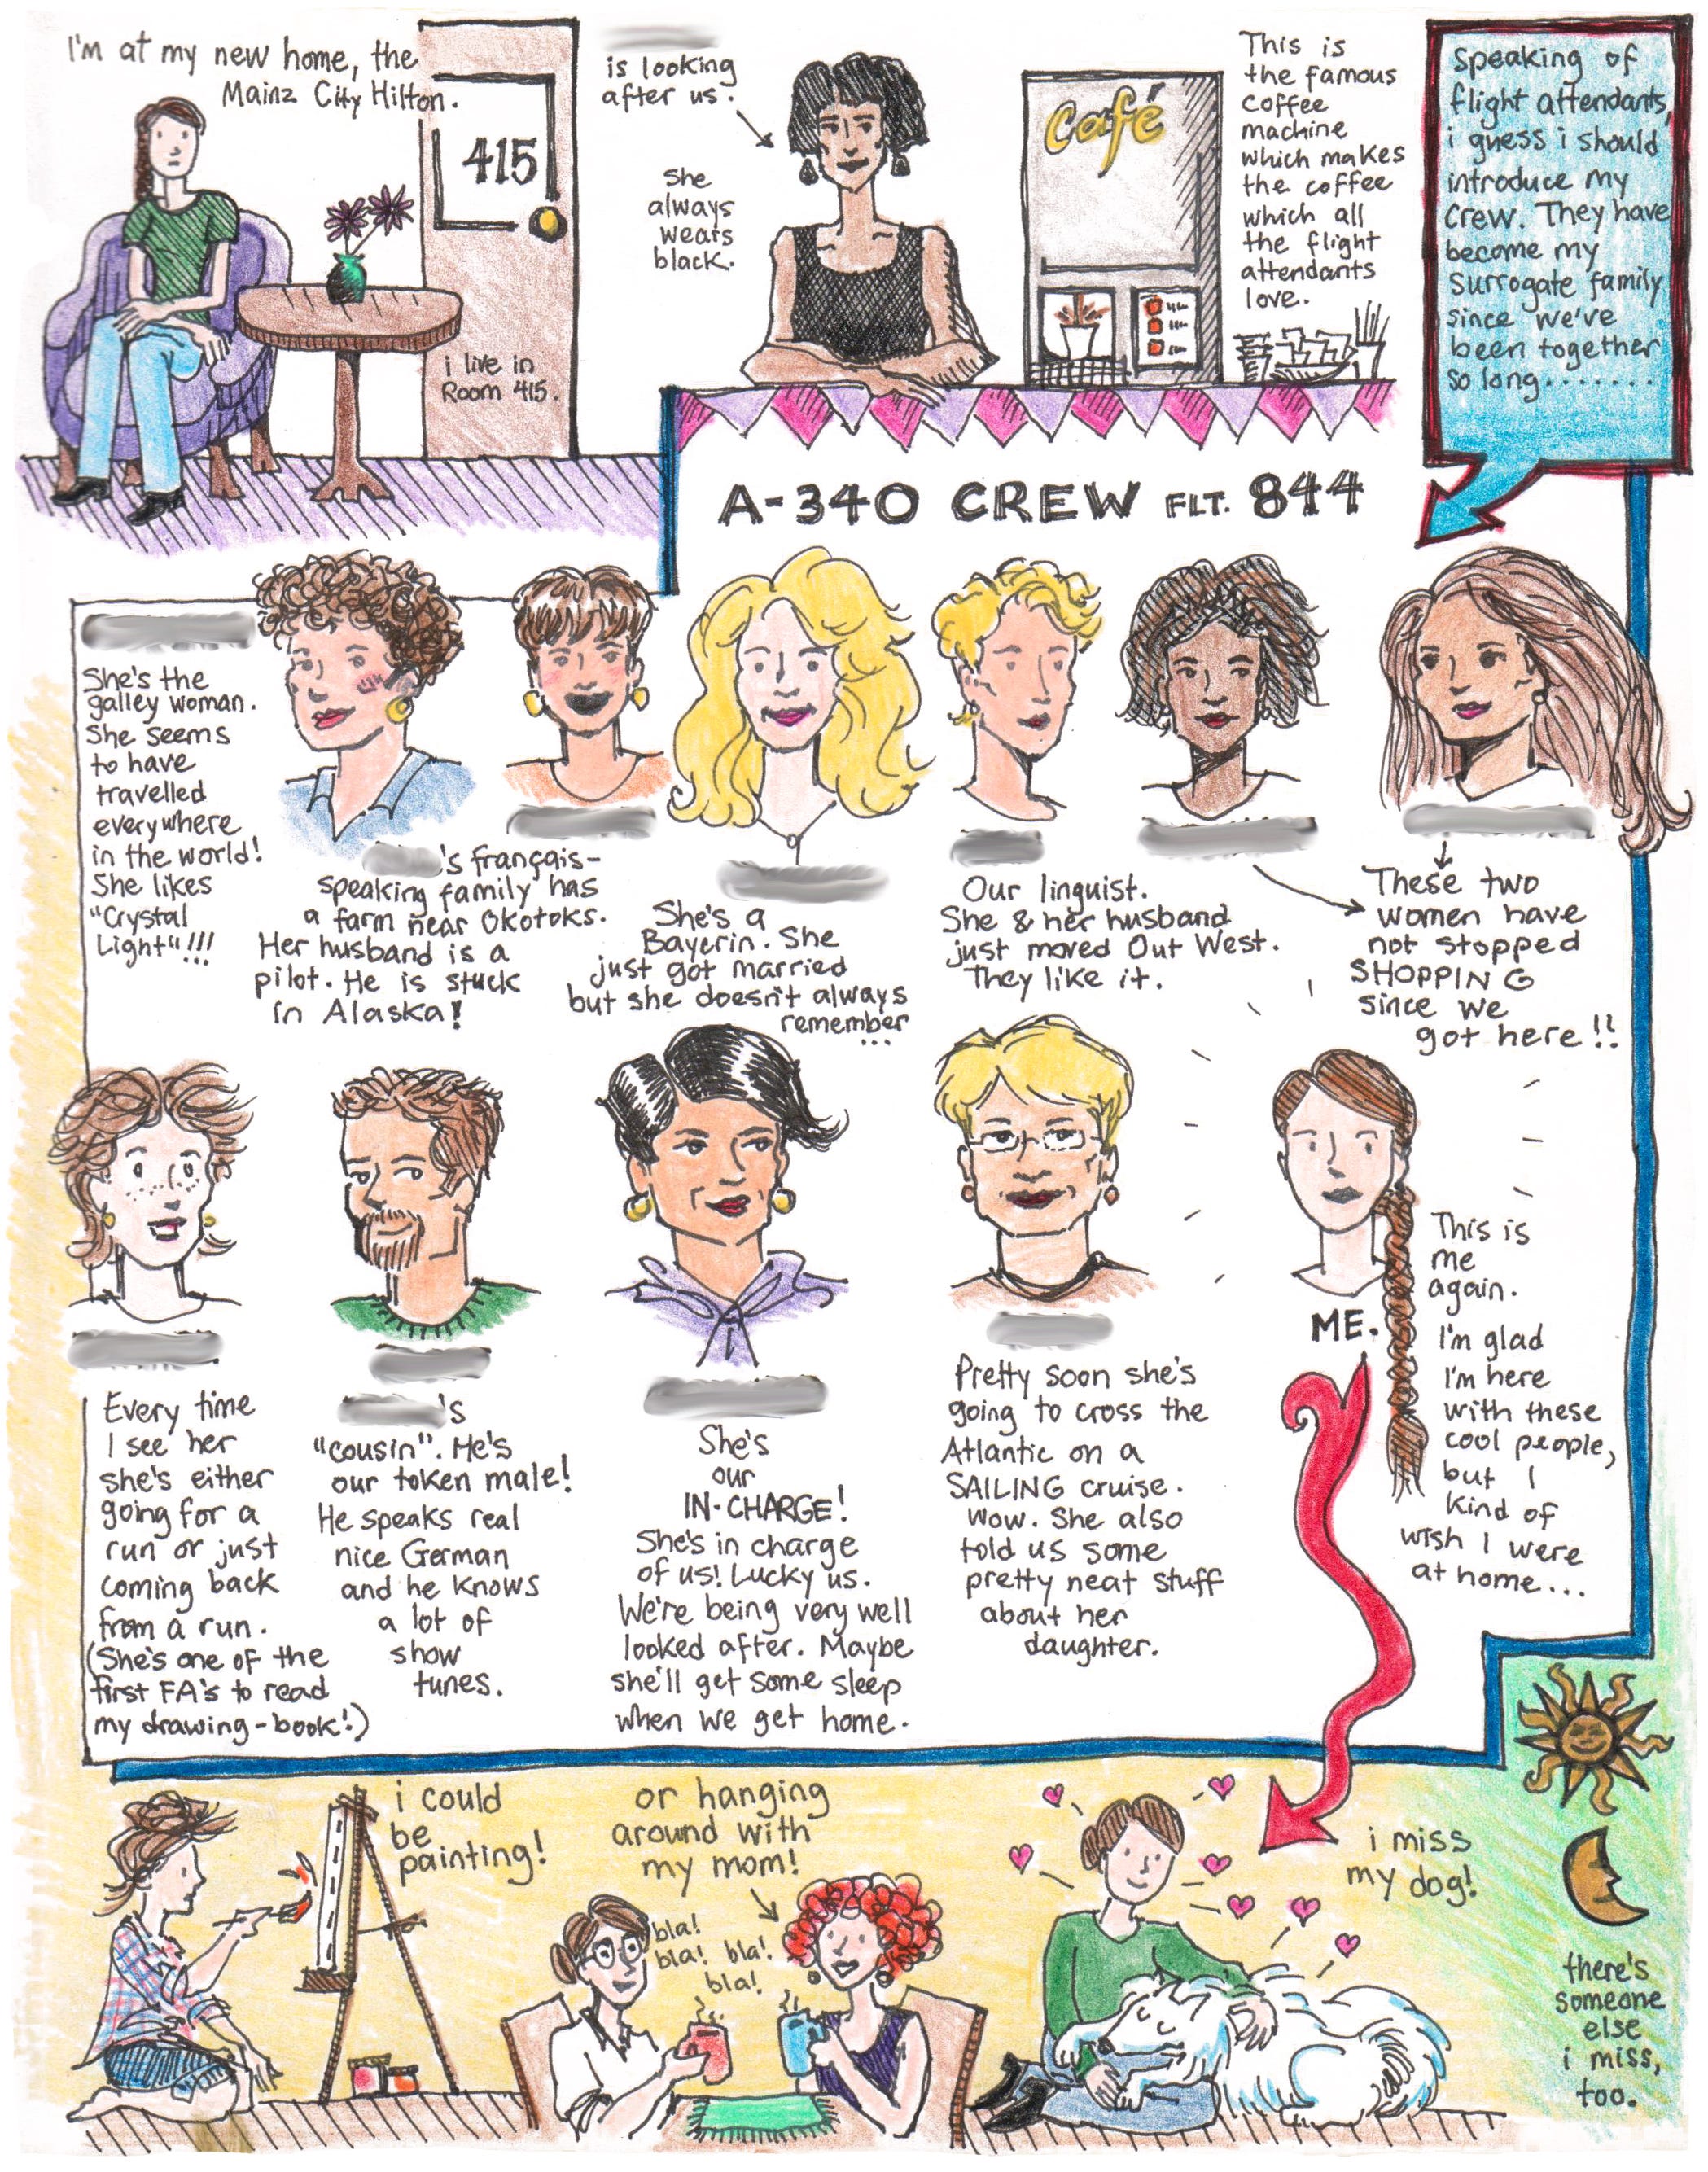 I'm at my new home, the
Mainz City Hilton.
415
i live in
Room 415.
is looking
after us.
She
always
wears
black.
Café
This is
the famous
coffee
machine
which makes
the coffee
which all
the flight
attendants
love.
Speaking of
flight attendants,
i guess i should
introduce my
crew. They have
become my
surrogate family
since we've
been together
so long.......
A-340 CREW FLT. 844
She's the
galley woman.
She seems
to have
travelled
everywhere
in the world!
She likes
"Crystal
Light"!!!
's français-
speaking family has
a farm near Okotoks.
Her husband is a
pilot. He is stuck
in Alaska!
She's a
Bayerin. She
just got married
but she doesn't always
remember
...
Our linguist.
She & her husband
just moved Out West.
They like it.
These two
women have
not stopped
SHOPPING
since we
got here!!
Every time
I see her
she's either
going for a
run or just
coming back
from a run.
(She's one of the
first FA's to read
my drawing-book!)
's
"cousin". He's
our token male!
He speaks real
nice German
and he knows
a lot of
show
tunes.
She's
our
IN-CHARGE!
She's in charge
of us! Lucky us.
We're being very well
looked after. Maybe
she'll get some sleep
when we get home.
Pretty soon she's
going to cross the
Atlantic on a
SAILING cruise.
Wow. She also
told us some
pretty neat stuff
about her
daughter.
ME.
This is
me
again.
I'm glad
I'm here
with these
cool people,
but I
kind of
wish I were
at home...
i could
be
painting!
or hanging
around with
my mom!
bla!
bla! bla!
bla!
i miss
my dog!
there's
someone
else
i miss,
too.